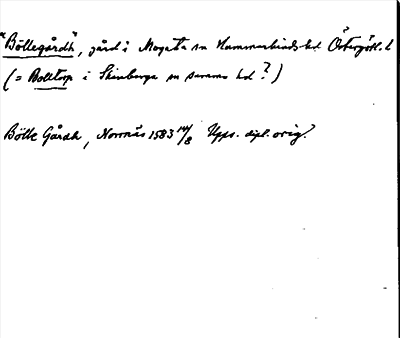 "Böllegårdh", gård i Mogata sn Hammarkinds hd Östergötl. l
(= Bolltorp i Skönberga sn samma hd?)
Bölle Gårdh, Norrnäs 1583 14/8 Upps. dipl. orig.